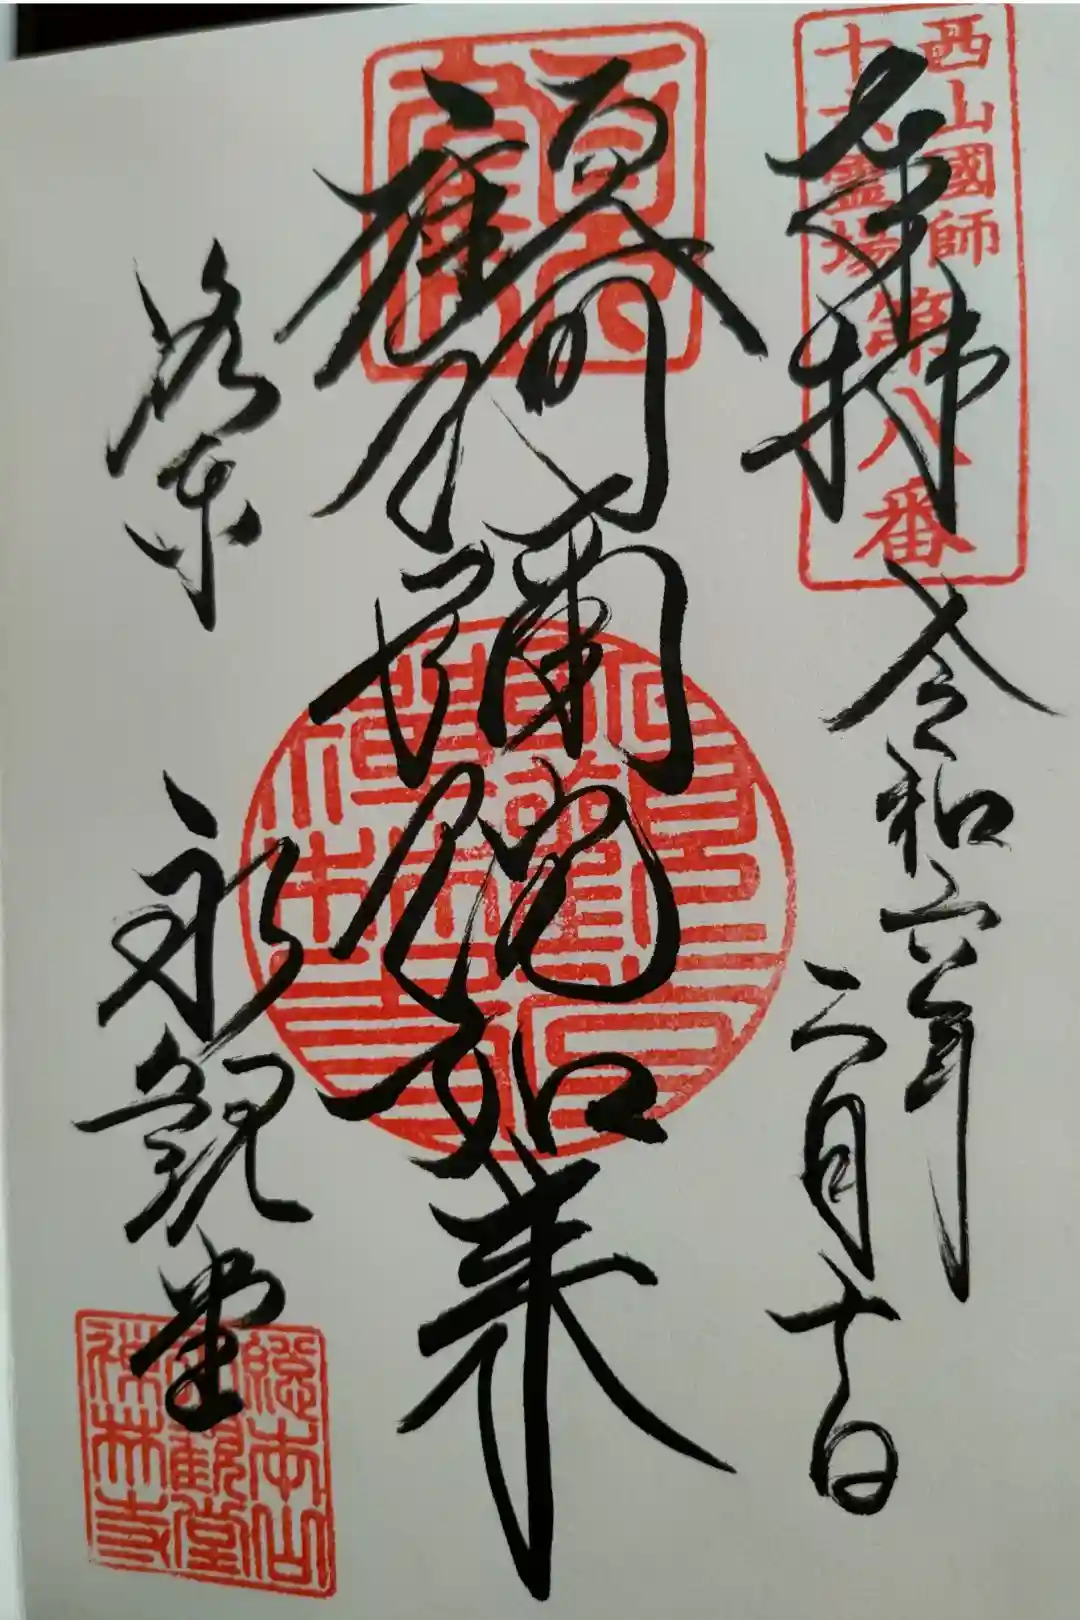 西山國師
十六霊場
第八番
奉拝
令和六年
二月十日
顧阿彌陀如来
洛東
永観堂
總本山
永觀堂
禅林寺